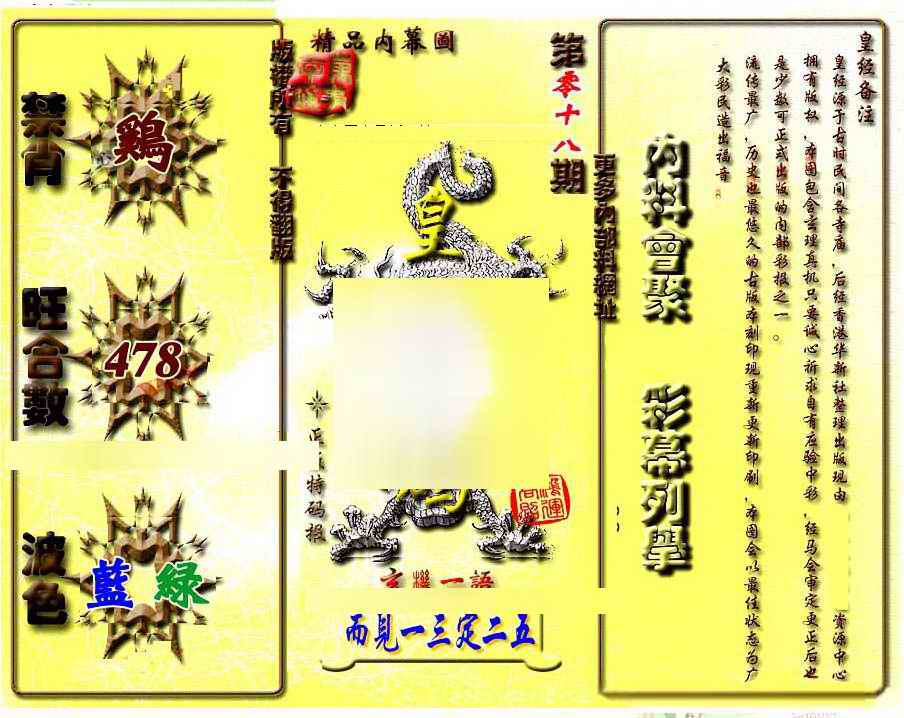 精品内幕圖
第零十八期
版權所有 不得翻版
更多內部料網址
禁肖
鷄
旺合數
478
波色
藍 綠
皇
特码报
玄機一語
而見一三定二五
內料會聚
彩幕列學
皇经备注
皇经源于古时民间各寺庙，后经香港华新社整理出版现由
资源中心
拥有版权，本图包含玄理真机只要诚心祈求自有应验中彩，经马会审定更正后也
是少数可正式出版的内部彩报之一。
流传最广，历史也最悠久的古版本刻印现重新更新印刷，本图会以最佳状态为广
大彩民造出福音。